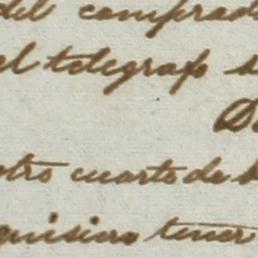 del comprad
el telegrafo s
D
otro cuarto de
quisiera tener